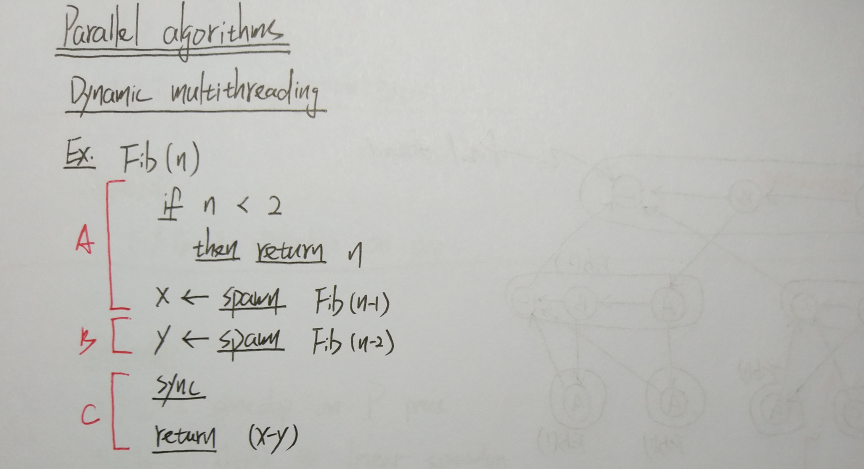 Parallel algorithms
Dynamic multithreading
Ex. Fib(n)
if n < 2
A
then return n
x ← spawn Fib(n-1)
B y ← spawn Fib(n-2)
sync
C
return (x-y)